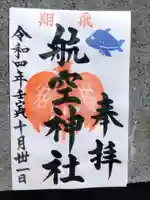 飛期
奉拝
航空神社
令和四年壬寅十月卅一日